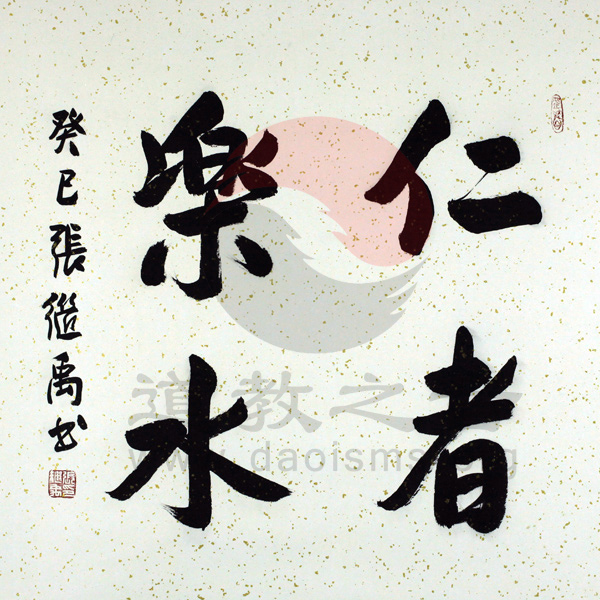 仁者
樂水
癸巳張繼禹书
道教之音
www.daoisms.org